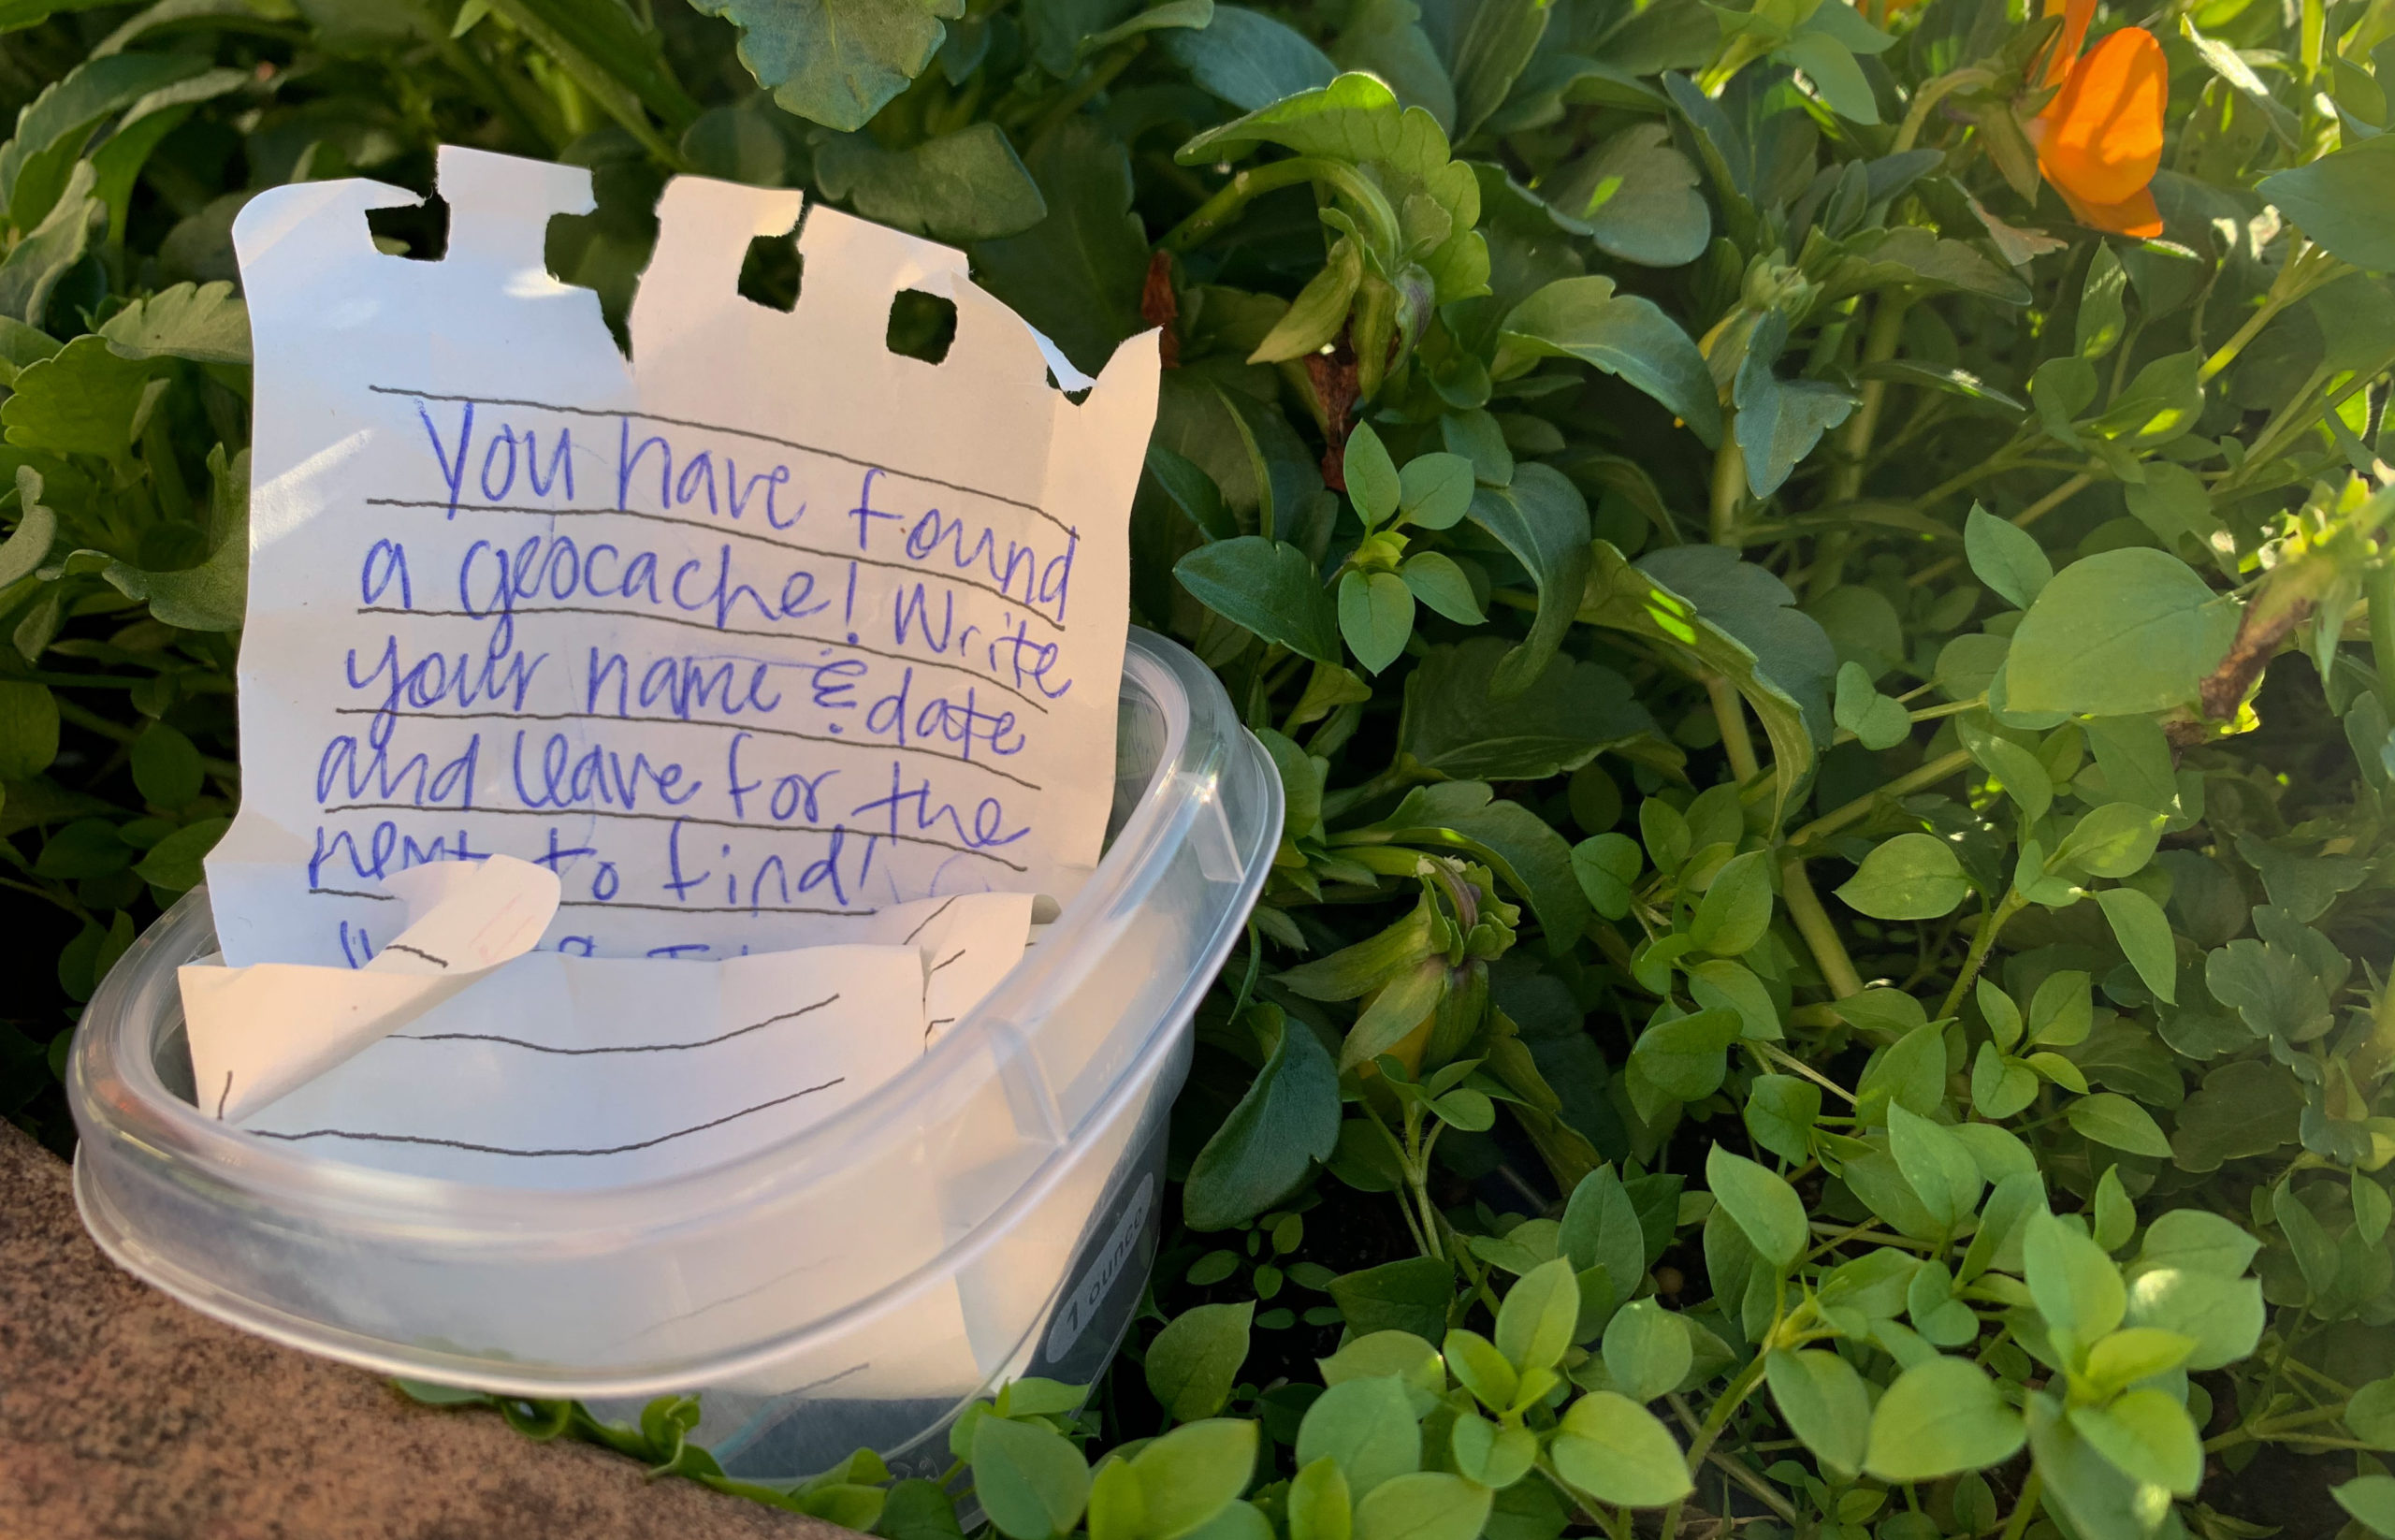 You have found
a geocache! Write
your name & date
and leave for the
next to find!
1 ounce